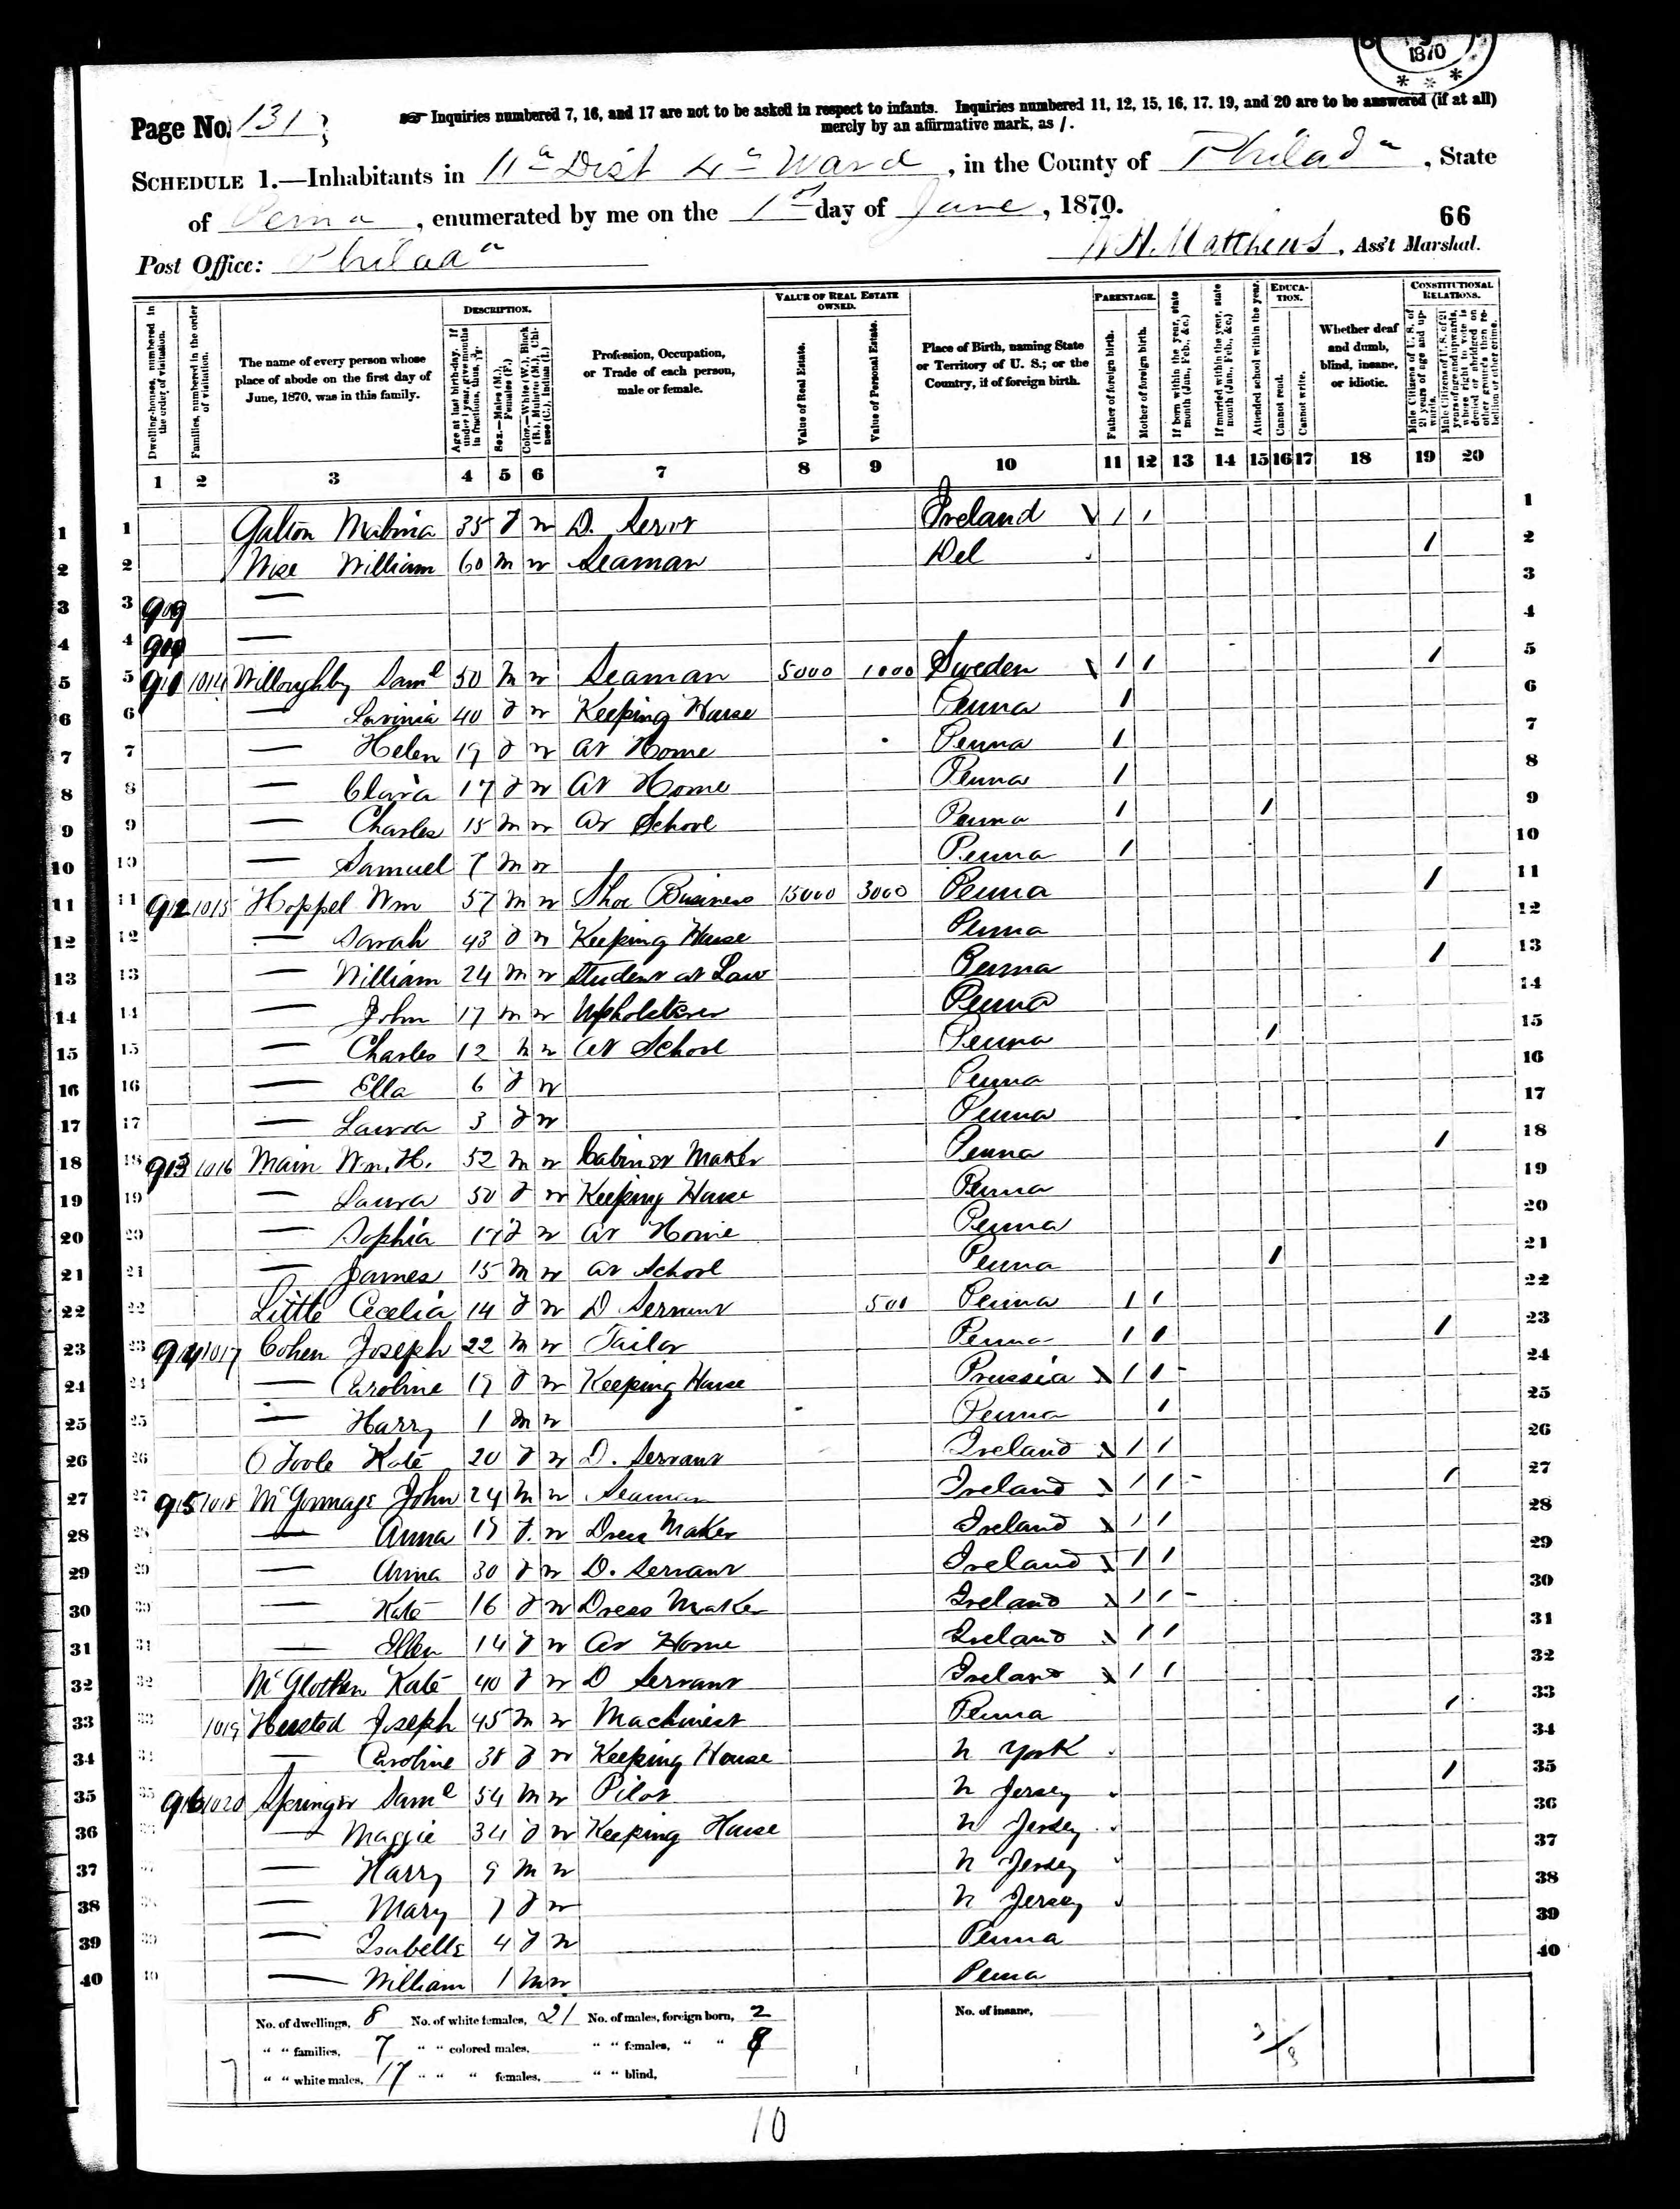 1870
Page No. 131
Inquiries numbered 7, 16, and 17 are not to be asked in respect to infants. Inquiries numbered 11, 12, 15, 16, 17, 19, and 20 are to be answered (if at all)
merely by an affirmative mark, as /.
SCHEDULE 1.—Inhabitants in 11th Dist 4th Ward, in the County of Philada, State
of Penna, enumerated by me on the 1st day of June, 1870.
66
Post Office: Philada
W H. Matthews, Ass't Marshal.
Dwelling-houses, numbered in the order of visitation.
Families, numbered in the order of visitation.
The name of every person whose place of abode on the first day of June, 1870, was in this family.
DESCRIPTION.
Age at last birth-day. If under 1 year, give months in fractions, thus, 3/12.
Sex.—Males (M.), Females (F.)
Color.—White (W.), Black (B.), Mulatto (M.), Chinese (C.), Indian (I.)
Profession, Occupation, or Trade of each person, male or female.
VALUE OF REAL ESTATE OWNED.
Value of Real Estate.
Value of Personal Estate.
Place of Birth, naming State or Territory of U. S.; or the Country, if of foreign birth.
PARENTAGE.
Father of foreign birth.
Mother of foreign birth.
If born within the year, state month (Jan., Feb., &c.)
If married within the year, state month (Jan., Feb., &c.)
Attended school within the year.
EDUCATION.
Cannot read.
Cannot write.
Whether deaf and dumb, blind, insane, or idiotic.
CONSTITUTIONAL RELATIONS.
Male Citizens of U. S. of 21 years of age and upwards.
Male Citizens of U. S. of 21 years of age and upwards, whose right to vote is denied or abridged on other grounds than rebellion or other crime.
1 2 3 4 5 6 7 8 9 10 11 12 13 14 15 16 17 18 19 20
1 Galton 35 F W D. Servt Ireland / / 1
2 Wise William 60 M W Seaman Del / 2
3 909 — 3
4 — 4
5 1014 Willoughby Saml 50 M W Seaman 5000 1000 Sweden / / / 5
6 — Lavinia 40 F W Keeping House Penna / 6
7 — Helen 19 F W At Home Penna / 7
8 — Clara 17 F W At Home Penna / 8
9 — Charles 15 M W At School Penna / / 9
10 — Samuel 7 M W Penna / 10
11 912 1015 Hoppel Wm 57 M W Shoe Business 15000 3000 Penna / 11
12 — Sarah 43 F W Keeping House Penna 12
13 — William 24 M W Student at Law Penna / 13
14 — John 17 M W Upholsterer Penna 14
15 — Charles 12 M W At School Penna / 15
16 — Ella 6 F W Penna 16
17 — Laura 3 F W Penna 17
18 913 1016 Main Wm. H. 52 M W Cabinet Maker Penna / 18
19 — Laura 50 F W Keeping House Penna 19
20 — Sophia 17 F W At Home Penna 20
21 — James 15 M W At School Penna / 21
22 Little Cecelia 14 F W D Servant 500 Penna / / 22
23 914 1017 Cohen Joseph 22 M W Tailor Penna / / / 23
24 — Caroline 19 F W Keeping House Prussia / / 24
25 — Harry 1 M W Penna / 25
26 O Toole Kate 20 F W D. Servant Ireland / / 26
27 915 1018 John 24 M W Seaman Ireland / / / 27
28 — Anna F W Dress Maker Ireland / / 28
29 — Anna 30 F W D. Servant Ireland / / 29
30 — Kate 16 F W Dress Maker Ireland / / 30
31 — Ellen 14 F W At Home Ireland / / 31
32 Kate 40 F W D Servant Ireland / / 32
33 1019 Joseph 45 M W Machinist Penna / 33
34 — Caroline 38 F W Keeping House N York 34
35 916 1020 Springer Saml 54 M W Pilot N Jersey / 35
36 — Maggie 34 F W Keeping House N Jersey 36
37 — Harry 9 M W N Jersey 37
38 — Mary 7 F W N Jersey 38
39 — Isabella 4 F W Penna 39
40 — William 1 M W Penna 40
No. of dwellings, 8 No. of white females, 21 No. of males, foreign born, 2 No. of insane,
" " families, 7 " " colored males, " " females, " " 8
" " white males, 17 " " " females, " " blind,
10